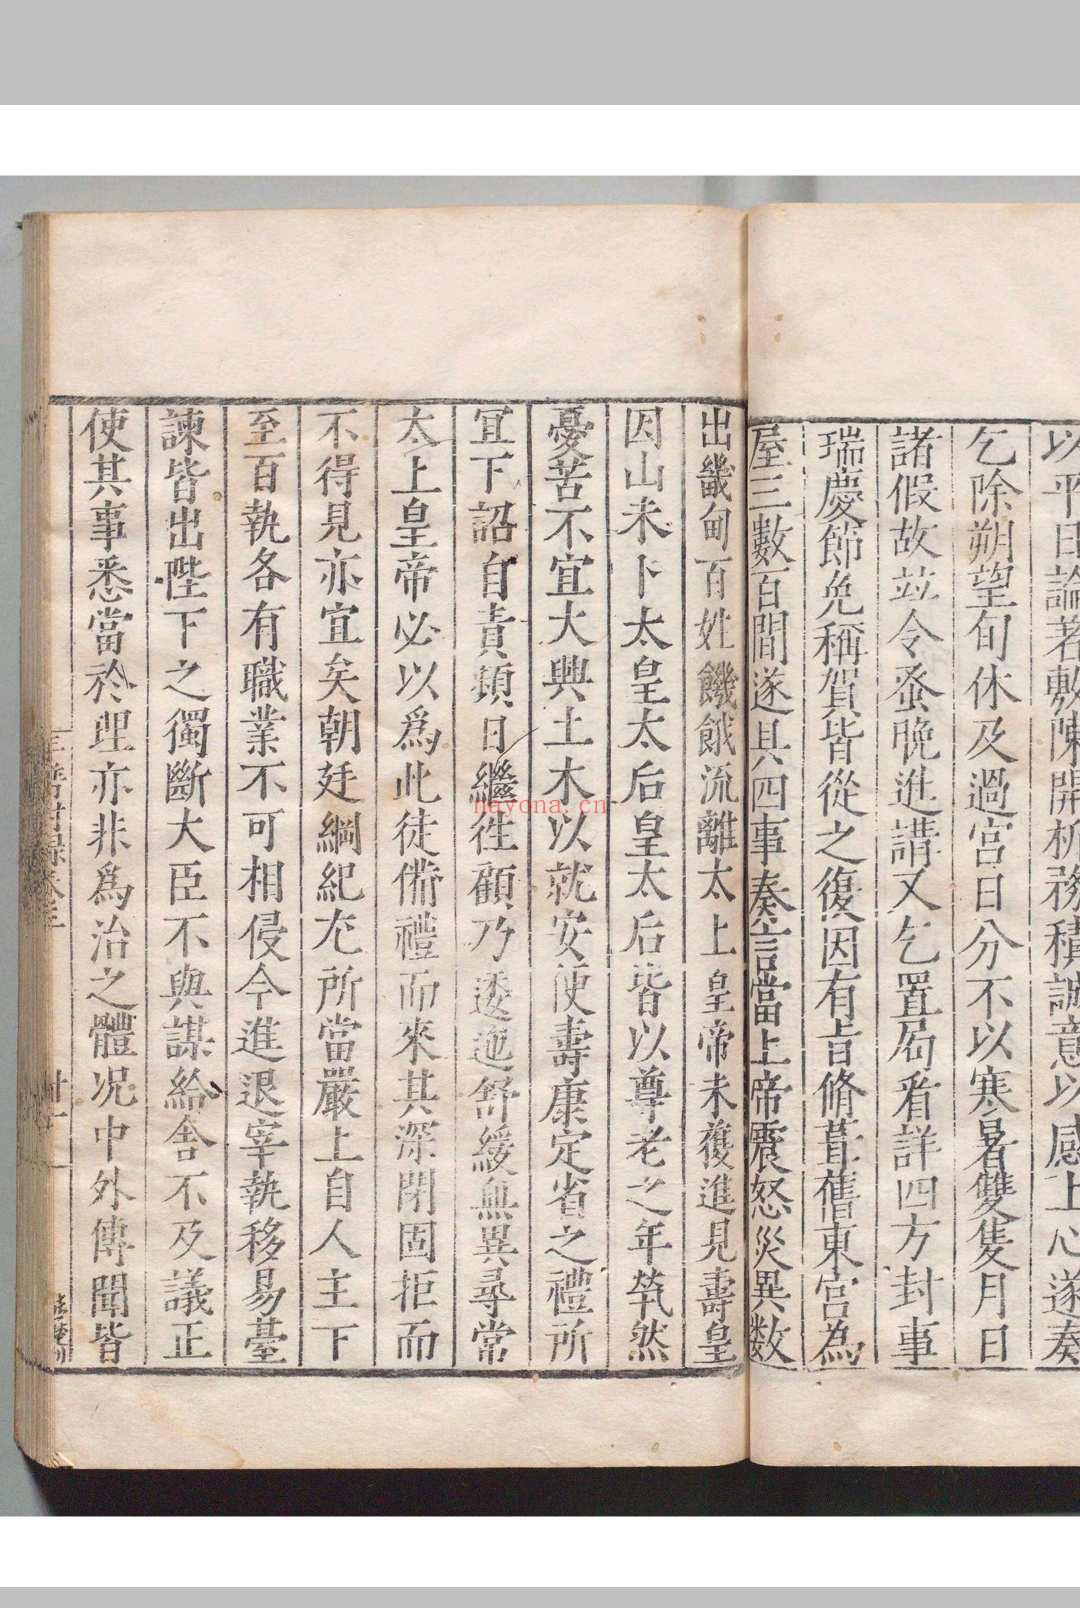 以平日論著敷陳開析務積誠意以感上心遂奏
乞除朔望旬休及過宮日分不以寒暑雙隻月日
諸假故並令蚤晚進講又乞置局看詳四方封事
瑞慶節免稱賀皆從之復因有旨脩葺舊東宮為
屋三數百間遂具四事奏言當上帝震怒災異數
出畿甸百姓饑餓流離太上皇帝未獲進見壽皇
因山未卜太皇太后皇太后皆以尊老之年煢然
憂苦不宜大興土木以就安便壽康定省之禮所
宜下詔自責頻日繼往顧乃逶迤舒緩無異尋常
太上皇帝必以爲此徒備禮而來其深閉固拒而
不得見亦宜矣朝廷綱紀尤所當嚴上自人主下
至百執各有職業不可相侵今進退宰執移易臺
諫皆出陛下之獨斷大臣不與謀給舍不及議正
使其事悉當於理亦非爲治之體况中外傳聞皆
nayona.cn